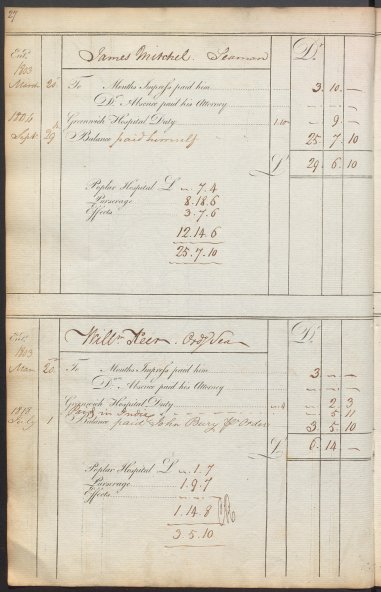 27
Ent.d James Mitchel. Seaman Dr
1803
March 20 To Months Impress paid him 3. 10. —
Do. Absence paid his Attorney
1804 Greenwich Hospital Duty 1.10 — 9. —
Sept. 29 Balance paid himself 25. 7. 10
£ 29. 6. 10
Poplar Hospital £ ". 7. 4
Purserage 8. 18. 6
Effects 3. 7. 6
12. 14 6
25. 7. 10
Ent.d Will.m Keen. Ord.y Sea Dr
1803
Mar. 20 To Months Impress paid him 3 — —
Do. Absence paid his Attorney
Greenwich Hospital Duty — 2. 3
Paid in India — 5 11
1 Balance paid John Bury Order 3 5. 10
£ 6. 14 —
Poplar Hospital £ ". 1. 7
Purserage 1. 9. 7
Effects
1. 14. 8
3. 5. 10